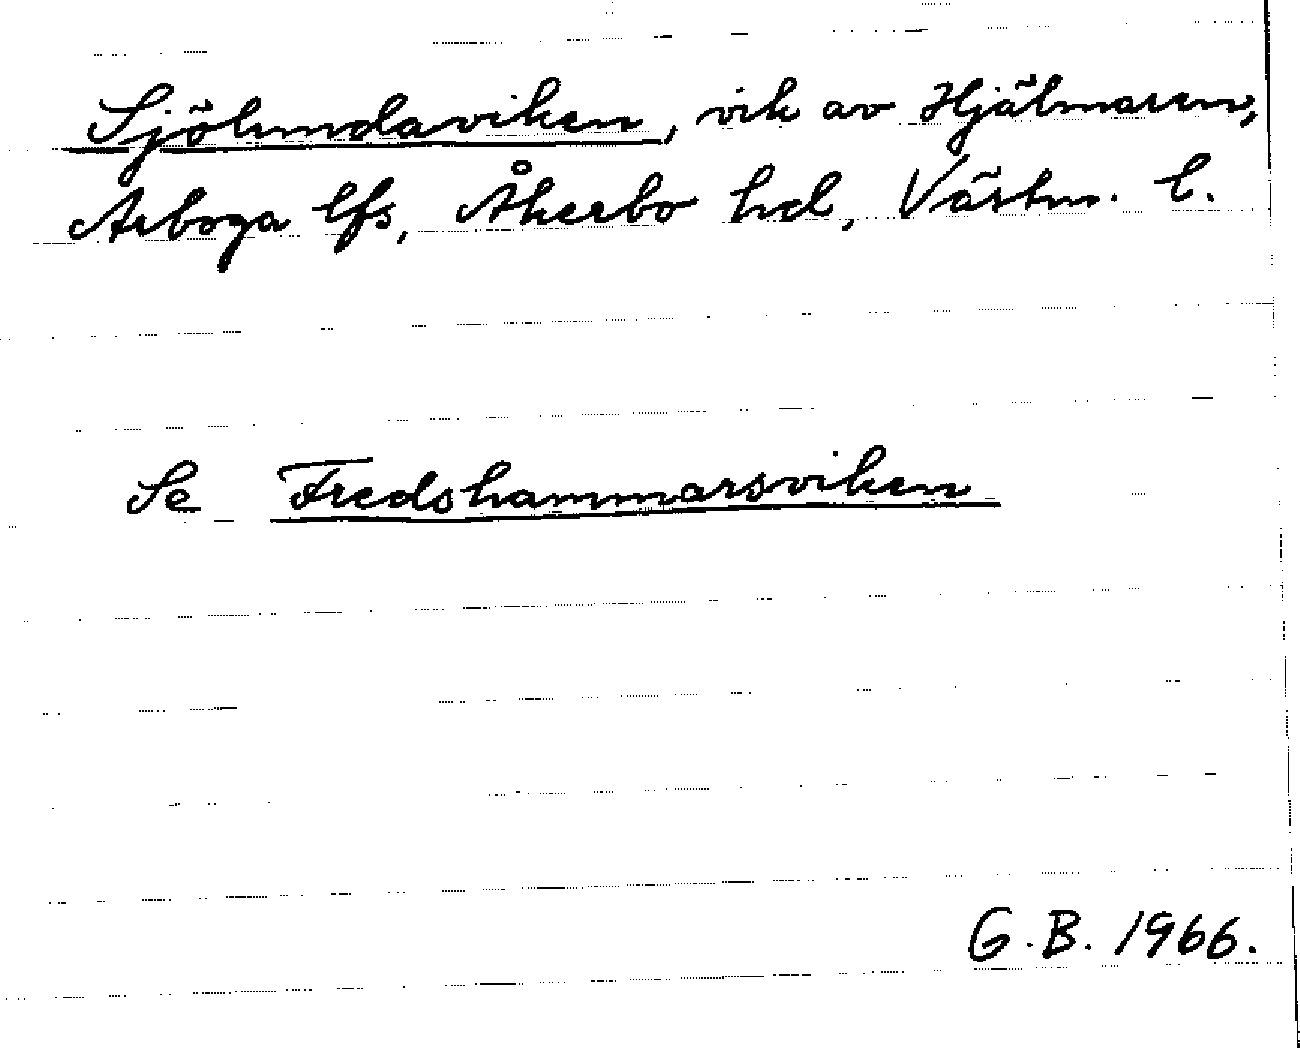 Sjölundaviken, vik av Hjälmaren,
Arboga lfs, Åkerbo hd, Västm. l.
Se Fredshammarsviken
G.B. 1966.